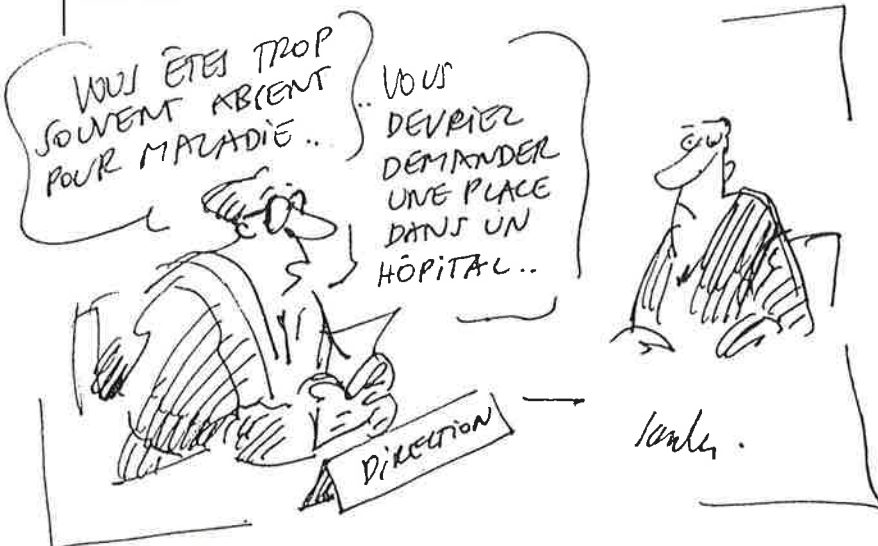 VOUS ÊTES TROP
SOUVENT ABSENT
POUR MALADIE..
.. VOUS
DEVRIEZ
DEMANDER
UNE PLACE
DANS UN
HÔPITAL..
DIRECTION